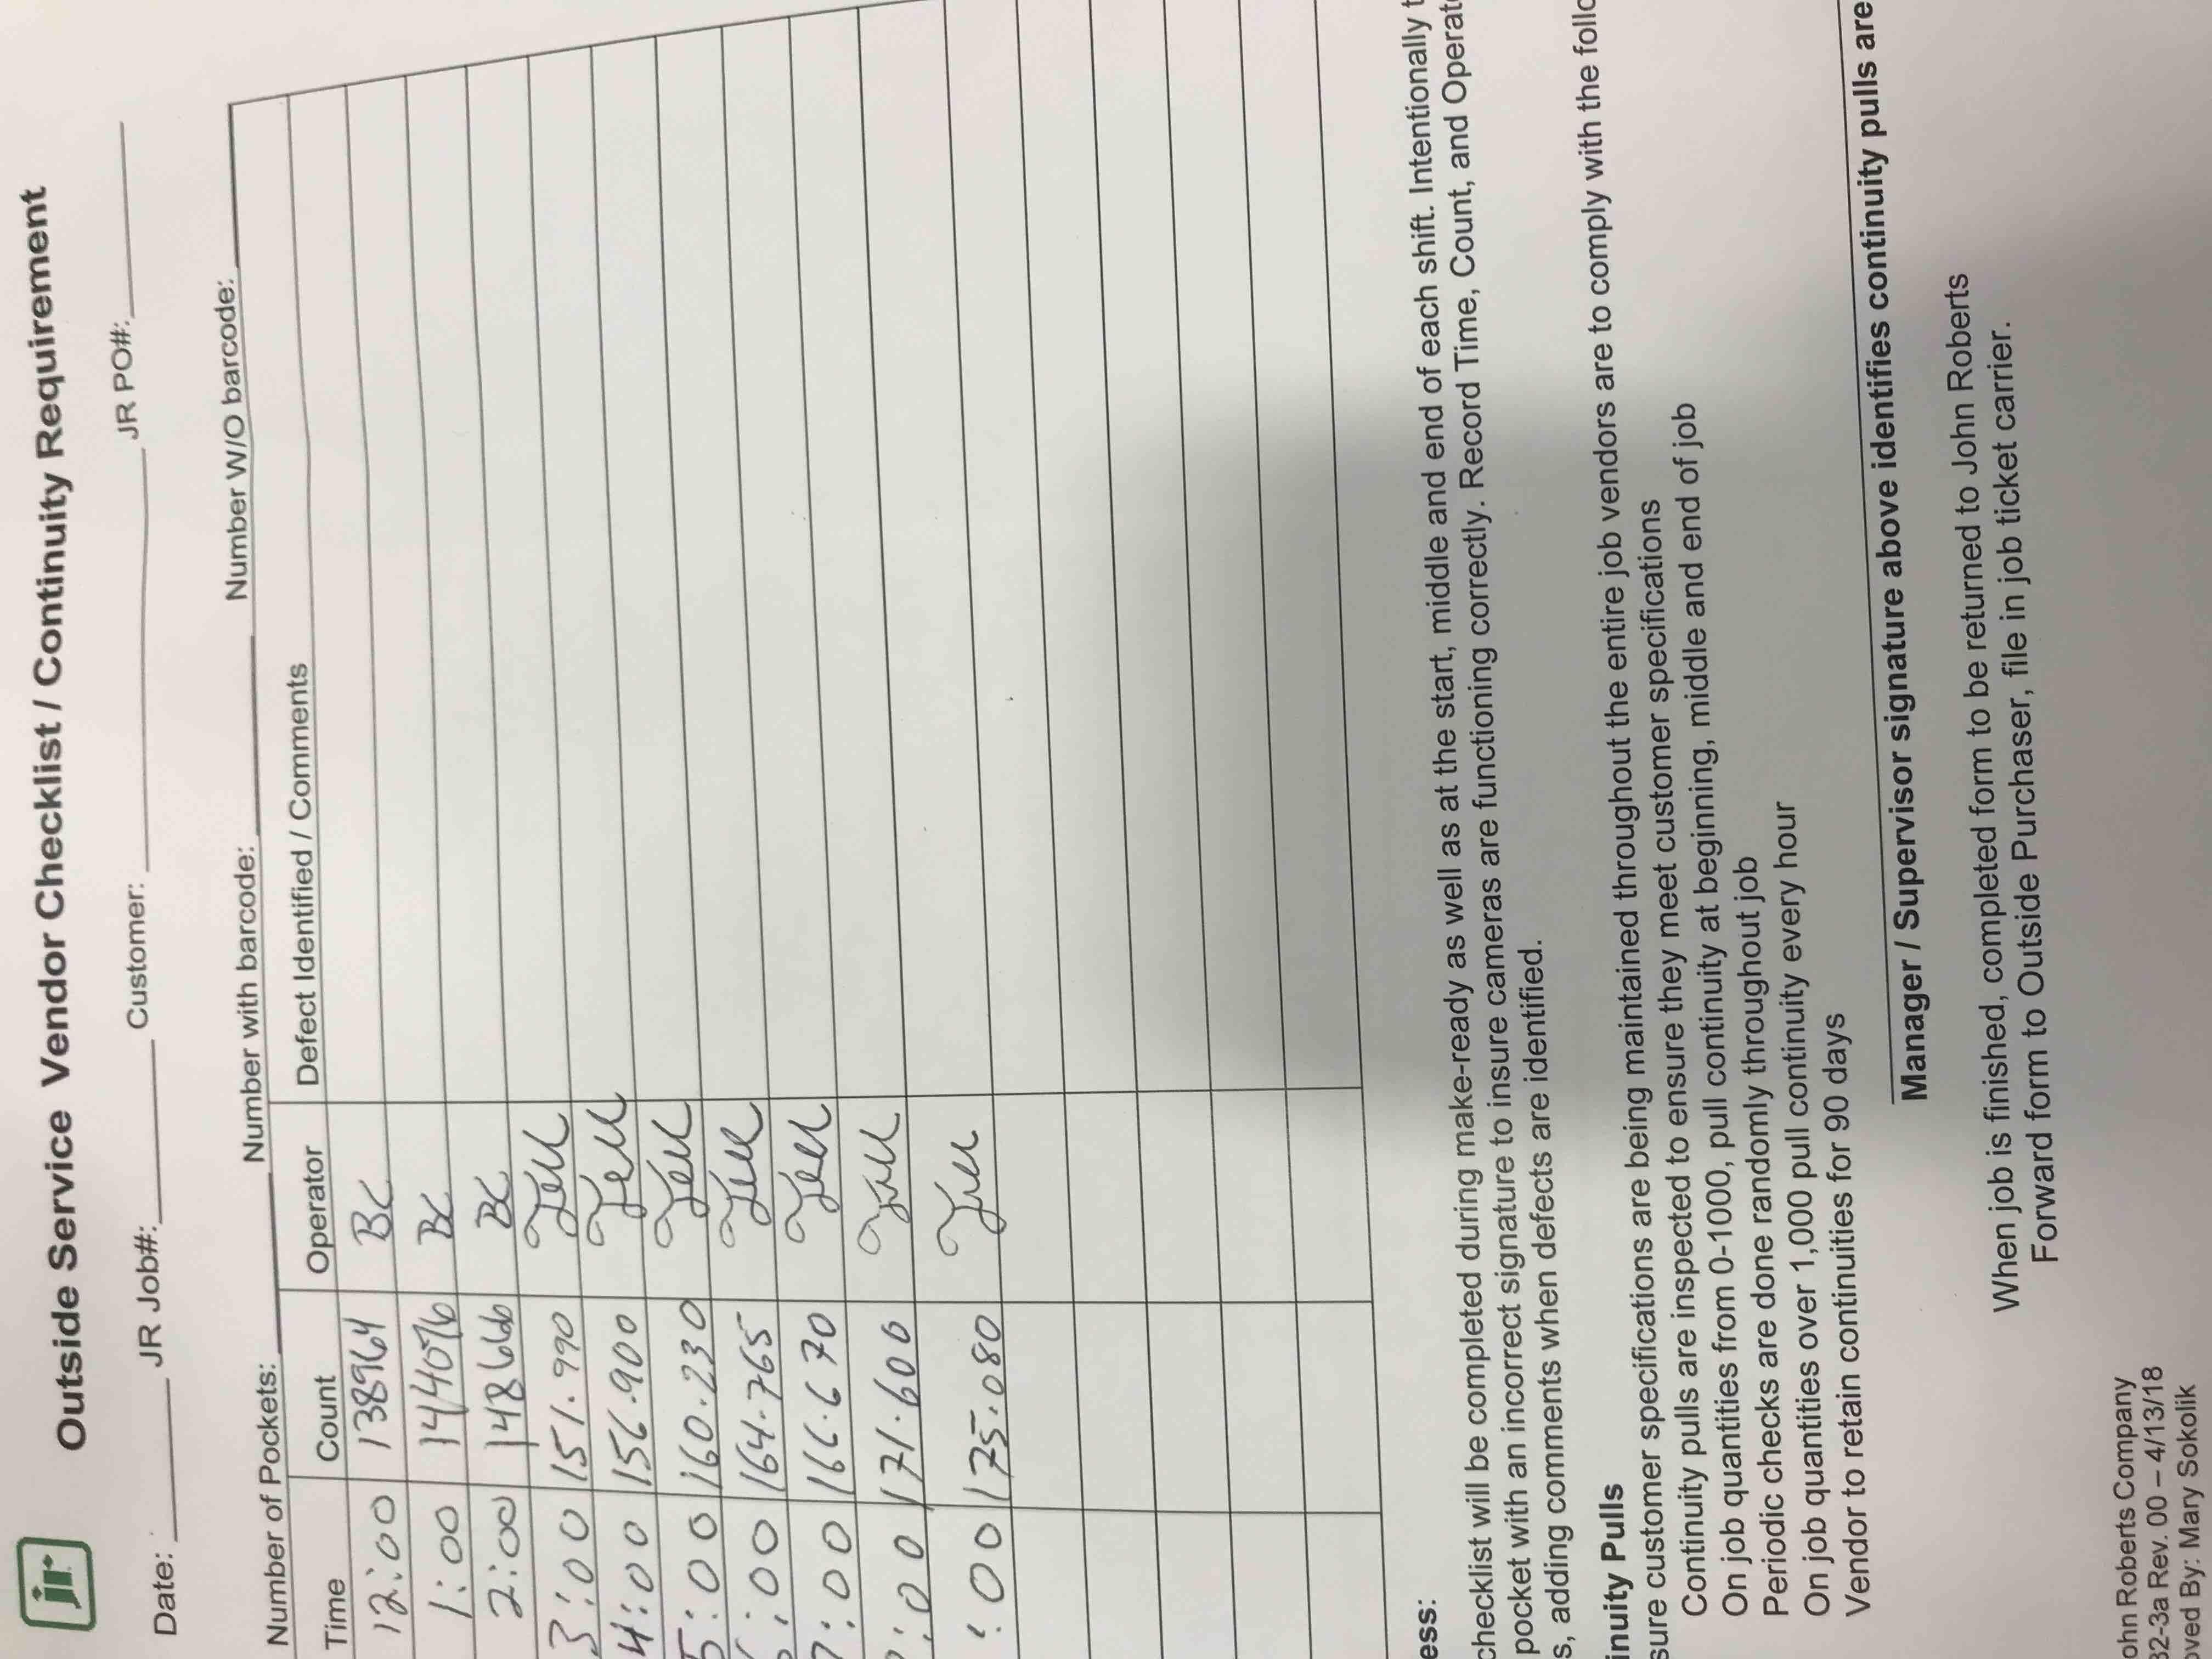 jr
Outside Service Vendor Checklist / Continuity Requirement
Date: JR Job#: Customer: JR PO#:
Number of Pockets: Number with barcode: Number W/O barcode:
Time Count Operator Defect Identified / Comments
12:00 138964 BC
1:00 144076 BC
2:00 148666 BC
3:00 151.990
4:00 156.900
5:00 160.230
:00 164.765
7:00 166.670
:00 171.600
:00 175.080
ess:
checklist will be completed during make-ready as well as at the start, middle and end of each shift. Intentionally t
pocket with an incorrect signature to insure cameras are functioning correctly. Record Time, Count, and Operat
s, adding comments when defects are identified.
inuity Pulls
sure customer specifications are being maintained throughout the entire job vendors are to comply with the follo
Continuity pulls are inspected to ensure they meet customer specifications
On job quantities from 0-1000, pull continuity at beginning, middle and end of job
Periodic checks are done randomly throughout job
On job quantities over 1,000 pull continuity every hour
Vendor to retain continuities for 90 days
Manager / Supervisor signature above identifies continuity pulls are
When job is finished, completed form to be returned to John Roberts
Forward form to Outside Purchaser, file in job ticket carrier.
ohn Roberts Company
82-3a Rev. 00 – 4/13/18
oved By: Mary Sokolik